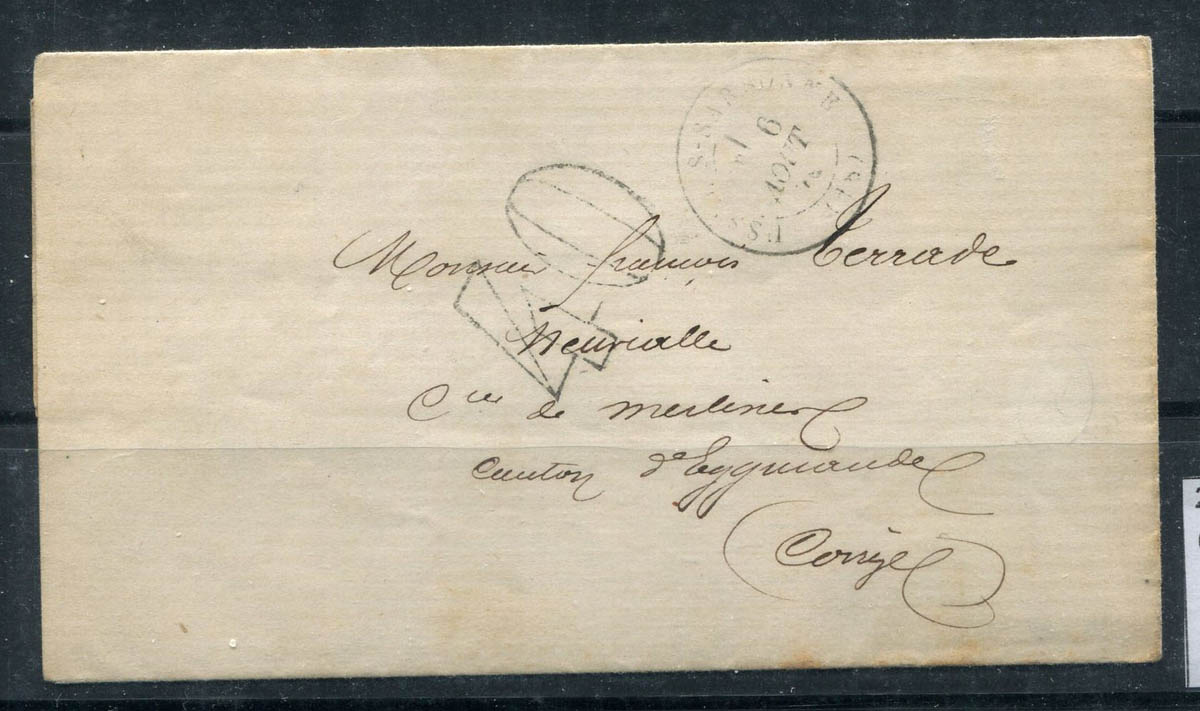 6
AOUT
40
Monsieur françois Terrade
Neuvialle
Cne de merlines
Canton d'Eygurande
Corrèze